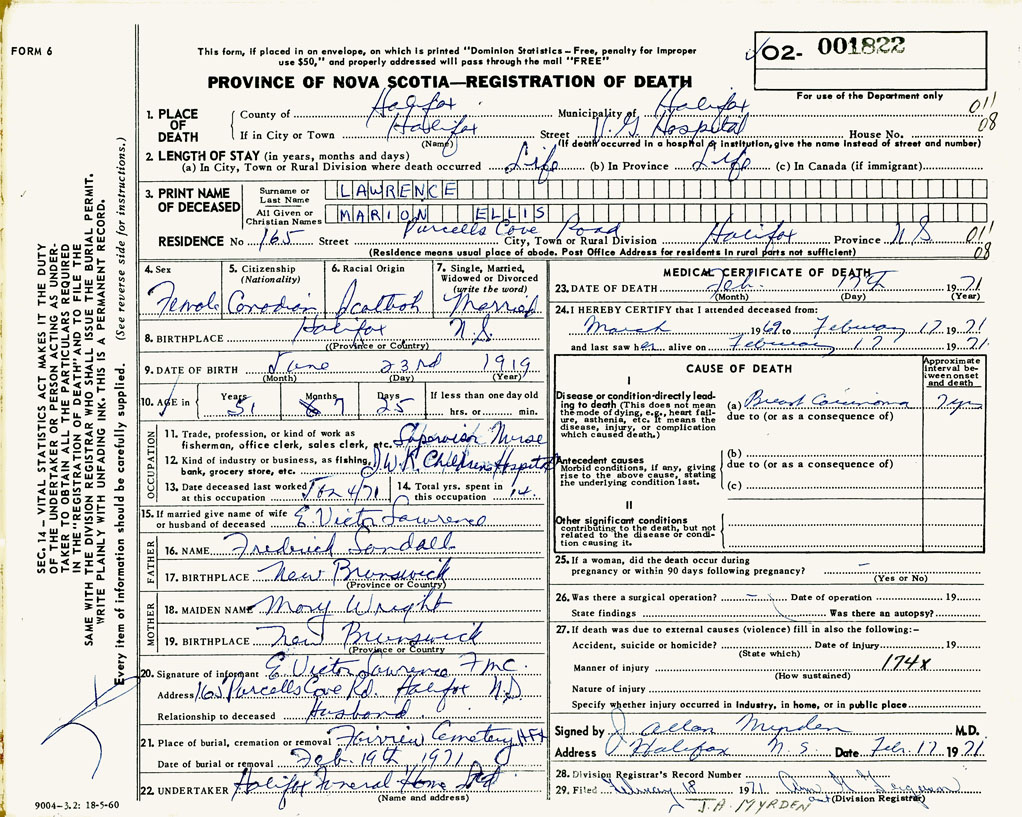 FORM 6
This form, if placed in an envelope, on which is printed "Dominion Statistics – Free, penalty for improper
use $50," and properly addressed will pass through the mail "FREE"
PROVINCE OF NOVA SCOTIA—REGISTRATION OF DEATH
02- 001822
For use of the Department only
1. PLACE OF DEATH
County of Halifax Municipality of Halifax 011
If in City or Town Halifax Street V. G. Hospital House No. 08
(Name) (If death occurred in a hospital or institution, give the name instead of street and number)
2. LENGTH OF STAY (in years, months and days)
(a) In City, Town or Rural Division where death occurred Life (b) In Province Life (c) In Canada (if immigrant)
3. PRINT NAME OF DECEASED
Surname or Last Name LAWRENCE
All Given or Christian Names MARION ELLIS
RESIDENCE No 165 Street Purcells Cove Road City, Town or Rural Division Halifax Province N.S. 011
(Residence means usual place of abode. Post Office Address for residents in rural parts not sufficient) 08
4. Sex Female
5. Citizenship (Nationality) Canadian
6. Racial Origin Scottish
7. Single, Married, Widowed or Divorced (write the word) Married
8. BIRTHPLACE Halifax N.S.
(Province or Country)
9. DATE OF BIRTH June 23rd 1919
(Month) (Day) (Year)
10. AGE in Years 51 Months 7 Days 25 If less than one day old
hrs. or min.
OCCUPATION
11. Trade, profession, or kind of work as
fisherman, office clerk, sales clerk, etc. Supervisor Nurse
12. Kind of industry or business, as fishing,
bank, grocery store, etc. I.W.K Children Hospital
13. Date deceased last worked at this occupation Jan 4/71
14. Total yrs. spent in this occupation 14.
15. If married give name of wife
or husband of deceased E. Victor Lawrence
FATHER
16. NAME Frederick Sandall
17. BIRTHPLACE New Brunswick
(Province or Country)
MOTHER
18. MAIDEN NAME Mary Wright
19. BIRTHPLACE New Brunswick
(Province or Country)
20. Signature of informant E Victor Lawrence
Address 165 Purcells Cove Rd. Halifax N.S.
Relationship to deceased Husband
21. Place of burial, cremation or removal Fairview Cemetery Hfx
Date of burial or removal Feb. 19th 1971
22. UNDERTAKER Halifax Funeral Home Ltd
(Name and address)
MEDICAL CERTIFICATE OF DEATH
23. DATE OF DEATH Feb. 17th 19 71
(Month) (Day) (Year)
24. I HEREBY CERTIFY that I attended deceased from:
March 1969 to February 17 19 71
and last saw her alive on February 17 19 71
CAUSE OF DEATH
Approximate interval between onset and death
I
Disease or condition directly leading to death (This does not mean the mode of dying, e.g., heart failure, asthenia, etc. It means the disease, injury, or complication which caused death.)
(a) Breast Carcinoma 7 yrs
due to (or as a consequence of)
Antecedent causes
Morbid conditions, if any, giving rise to the above cause, stating the underlying condition last.
(b)
due to (or as a consequence of)
(c)
II
Other significant conditions
contributing to the death, but not related to the disease or condition causing it.
25. If a woman, did the death occur during
pregnancy or within 90 days following pregnancy? –
(Yes or No)
26. Was there a surgical operation? – Date of operation 19
State findings Was there an autopsy?
27. If death was due to external causes (violence) fill in also the following:–
Accident, suicide or homicide? Date of injury 19
(State which)
Manner of injury 174x
(How sustained)
Nature of injury
Specify whether injury occurred in industry, in home, or in public place
Signed by J. Allan Myrden M.D.
Address Halifax N.S. Date Feb. 17 19 71
28. Division Registrar's Record Number
29. Filed February 18 1971
(Division Registrar)
J.A. MYRDEN
SEC. 14 – VITAL STATISTICS ACT MAKES IT THE DUTY
OF THE UNDERTAKER OR PERSON ACTING AS UNDER-
TAKER TO OBTAIN ALL THE PARTICULARS REQUIRED
IN THE "REGISTRATION OF DEATH" AND TO FILE THE
SAME WITH THE DIVISION REGISTRAR WHO SHALL ISSUE THE BURIAL PERMIT.
WRITE PLAINLY WITH UNFADING INK. THIS IS A PERMANENT RECORD.
Every item of information should be carefully supplied. (See reverse side for instructions.)
9004–3.2: 18-5-60